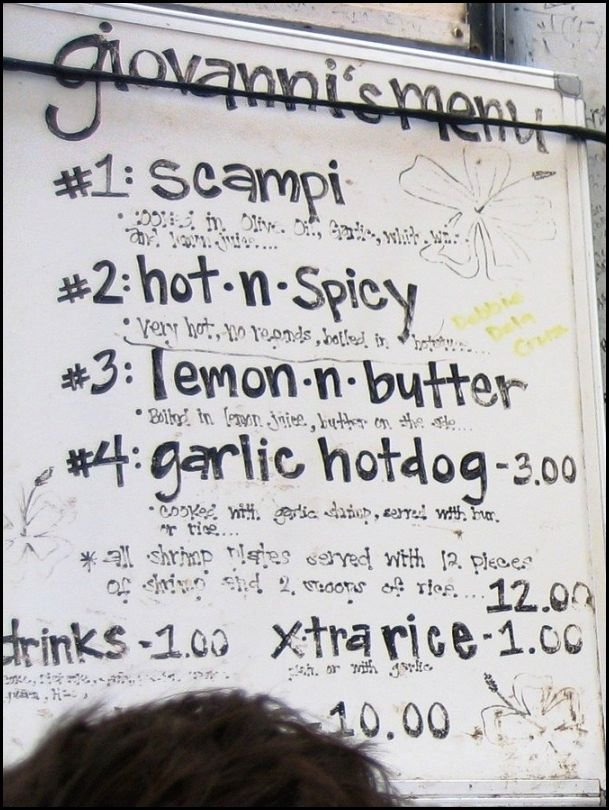 giovanni's menu
#1: scampi
• cooked in Olive Oil, Garlic, white wine
and lemon juice....
#2: hot·n·spicy
• very hot, no refunds, boiled in
Debbie
Dela
Cruz
#3: lemon·n·butter
• Boiled in lemon juice, butter on the side....
#4: garlic hotdog - 3.00
• cooked with garlic shrimp, served with bun
or rice....
* all shrimp plates served with 12 pieces
of shrimp and 2 scoops of rice.... 12.00
drinks - 1.00 X-tra rice - 1.00
plain or with garlic
-10.00